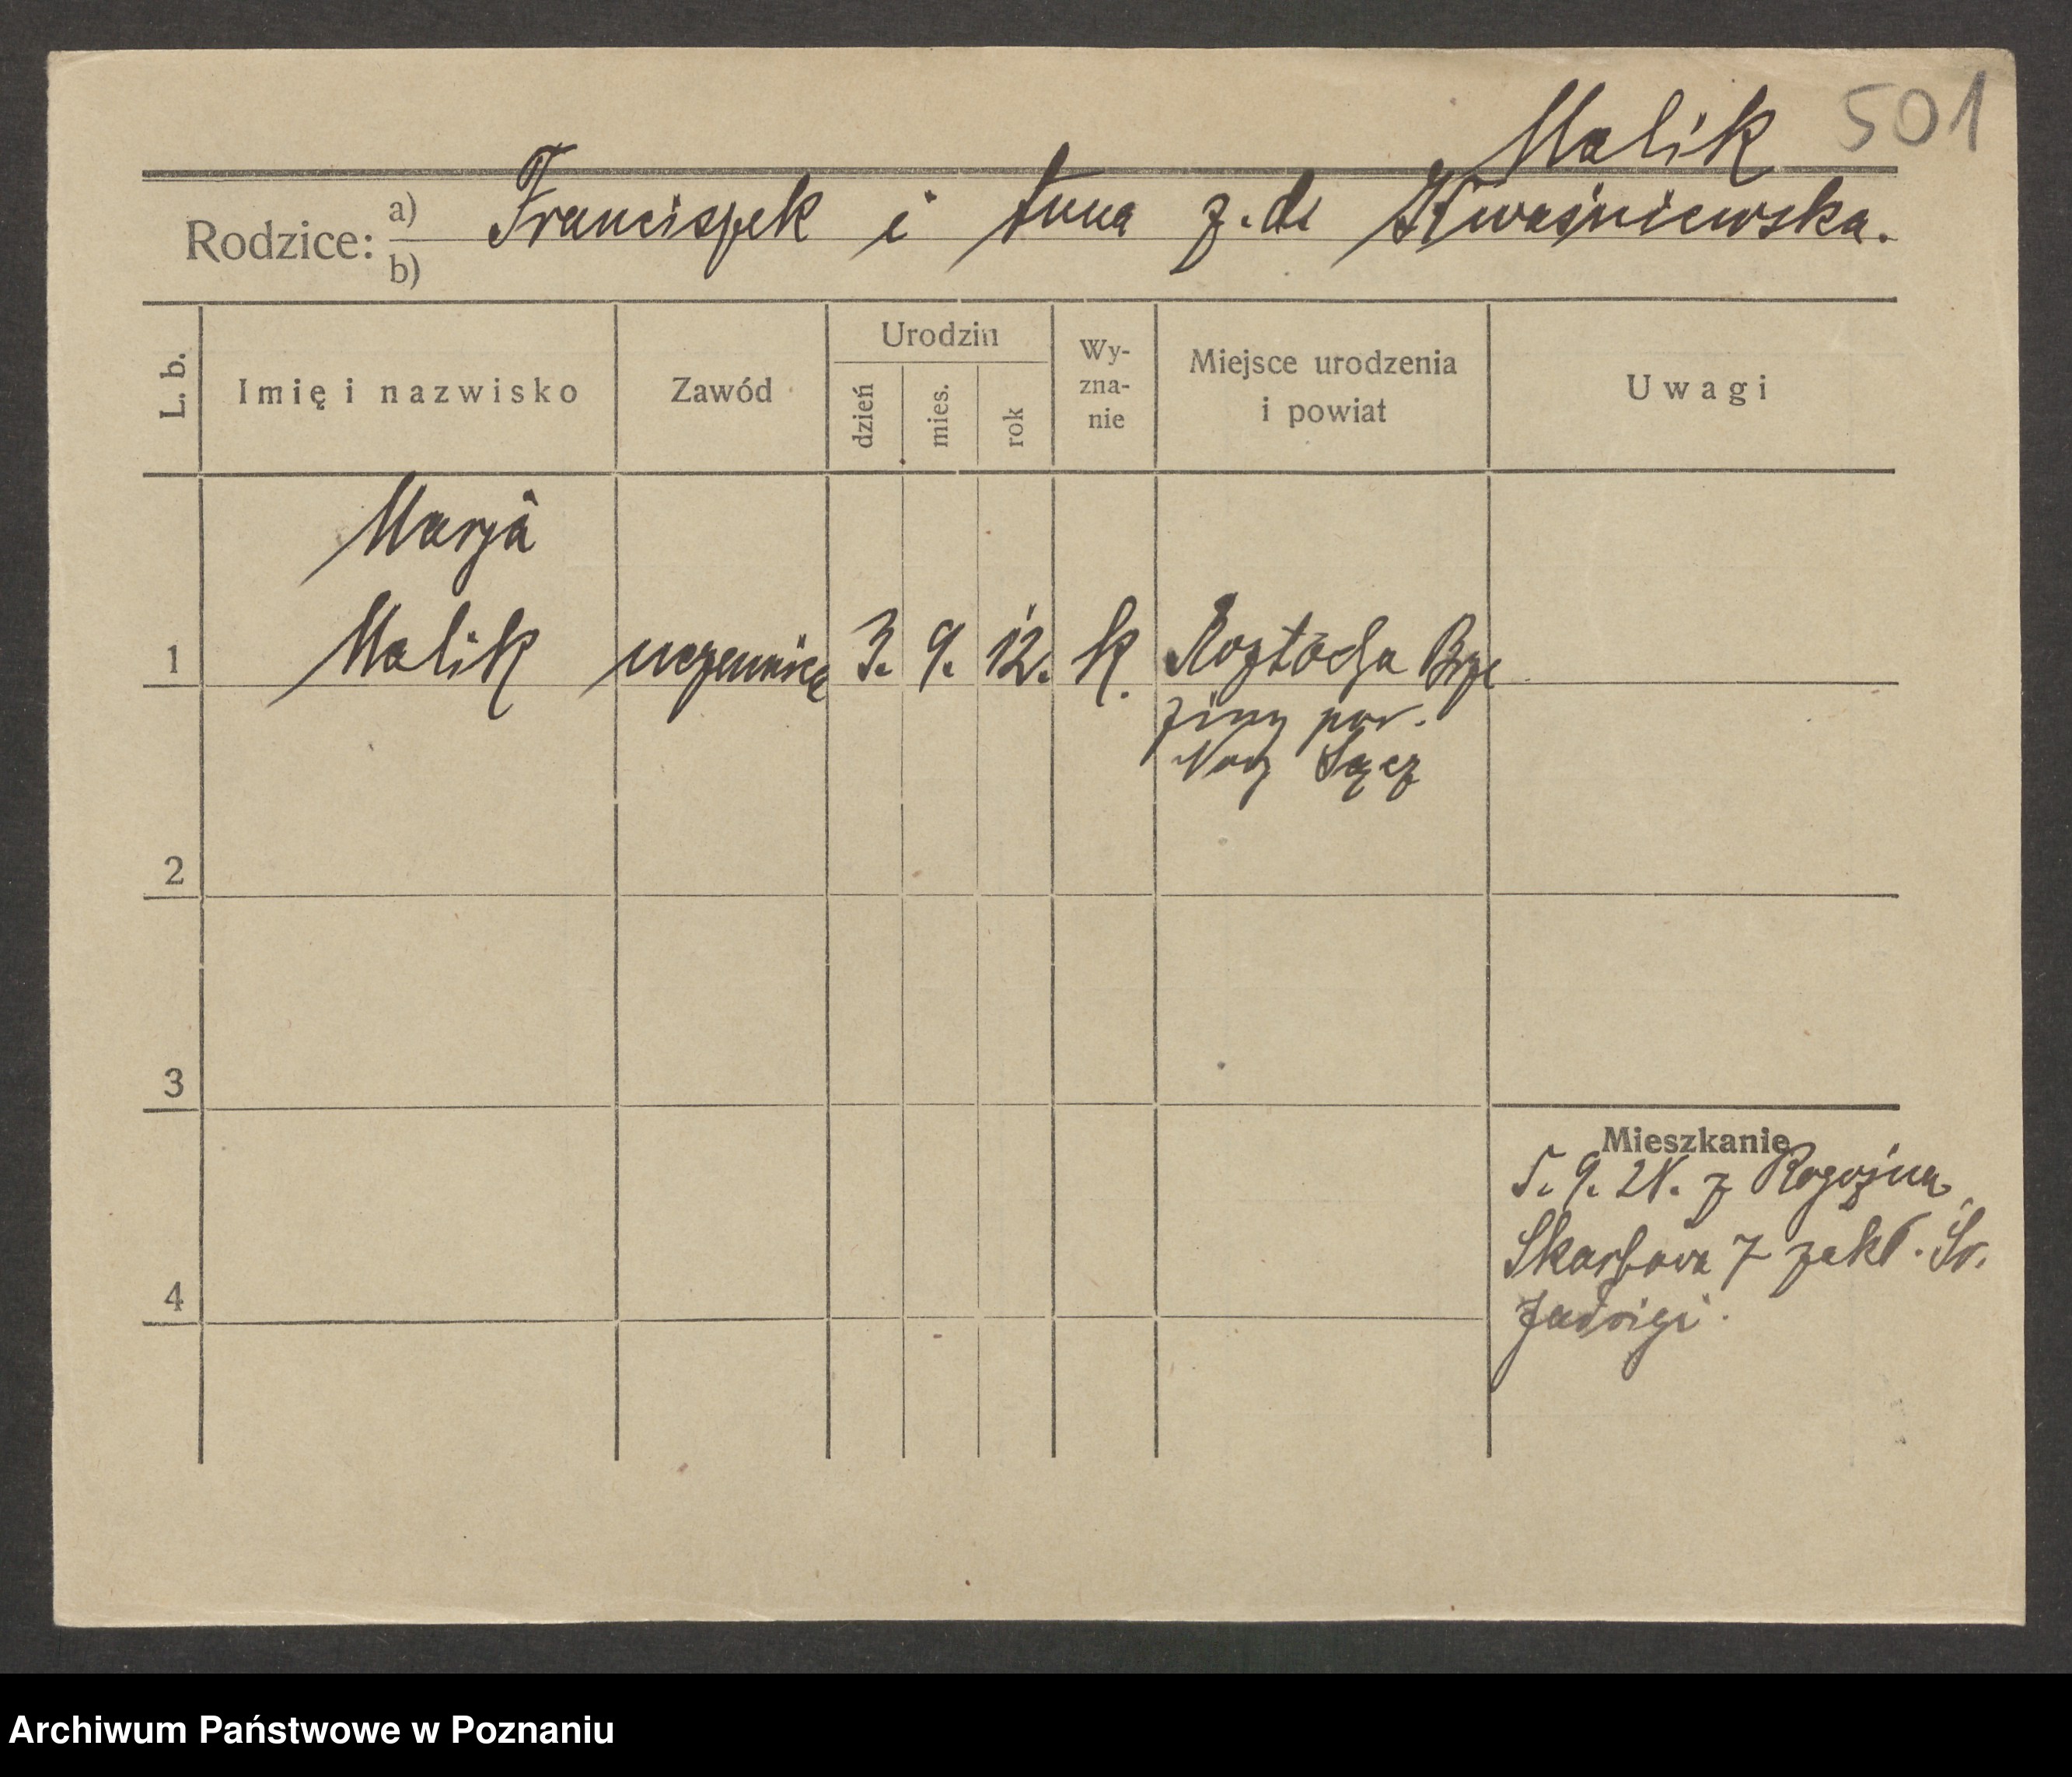 Malik 501
Rodzice: a) b) Franciszek i Anna z.d. Kwaśniewska.
L. b. Imię i nazwisko Zawód Urodzin dzień mies. rok Wy-zna-nie Miejsce urodzenia i powiat Uwagi
Marja
1 Malik uczennica 3. 9. 12. k. Roztoka Brze
ziny pow.
Nowy Sącz
2
3
Mieszkanie
5. 9. 28. z Rogoźna
Skarbowa 7 zakł. Św.
4
Jadwigi.
Archiwum Państwowe w Poznaniu